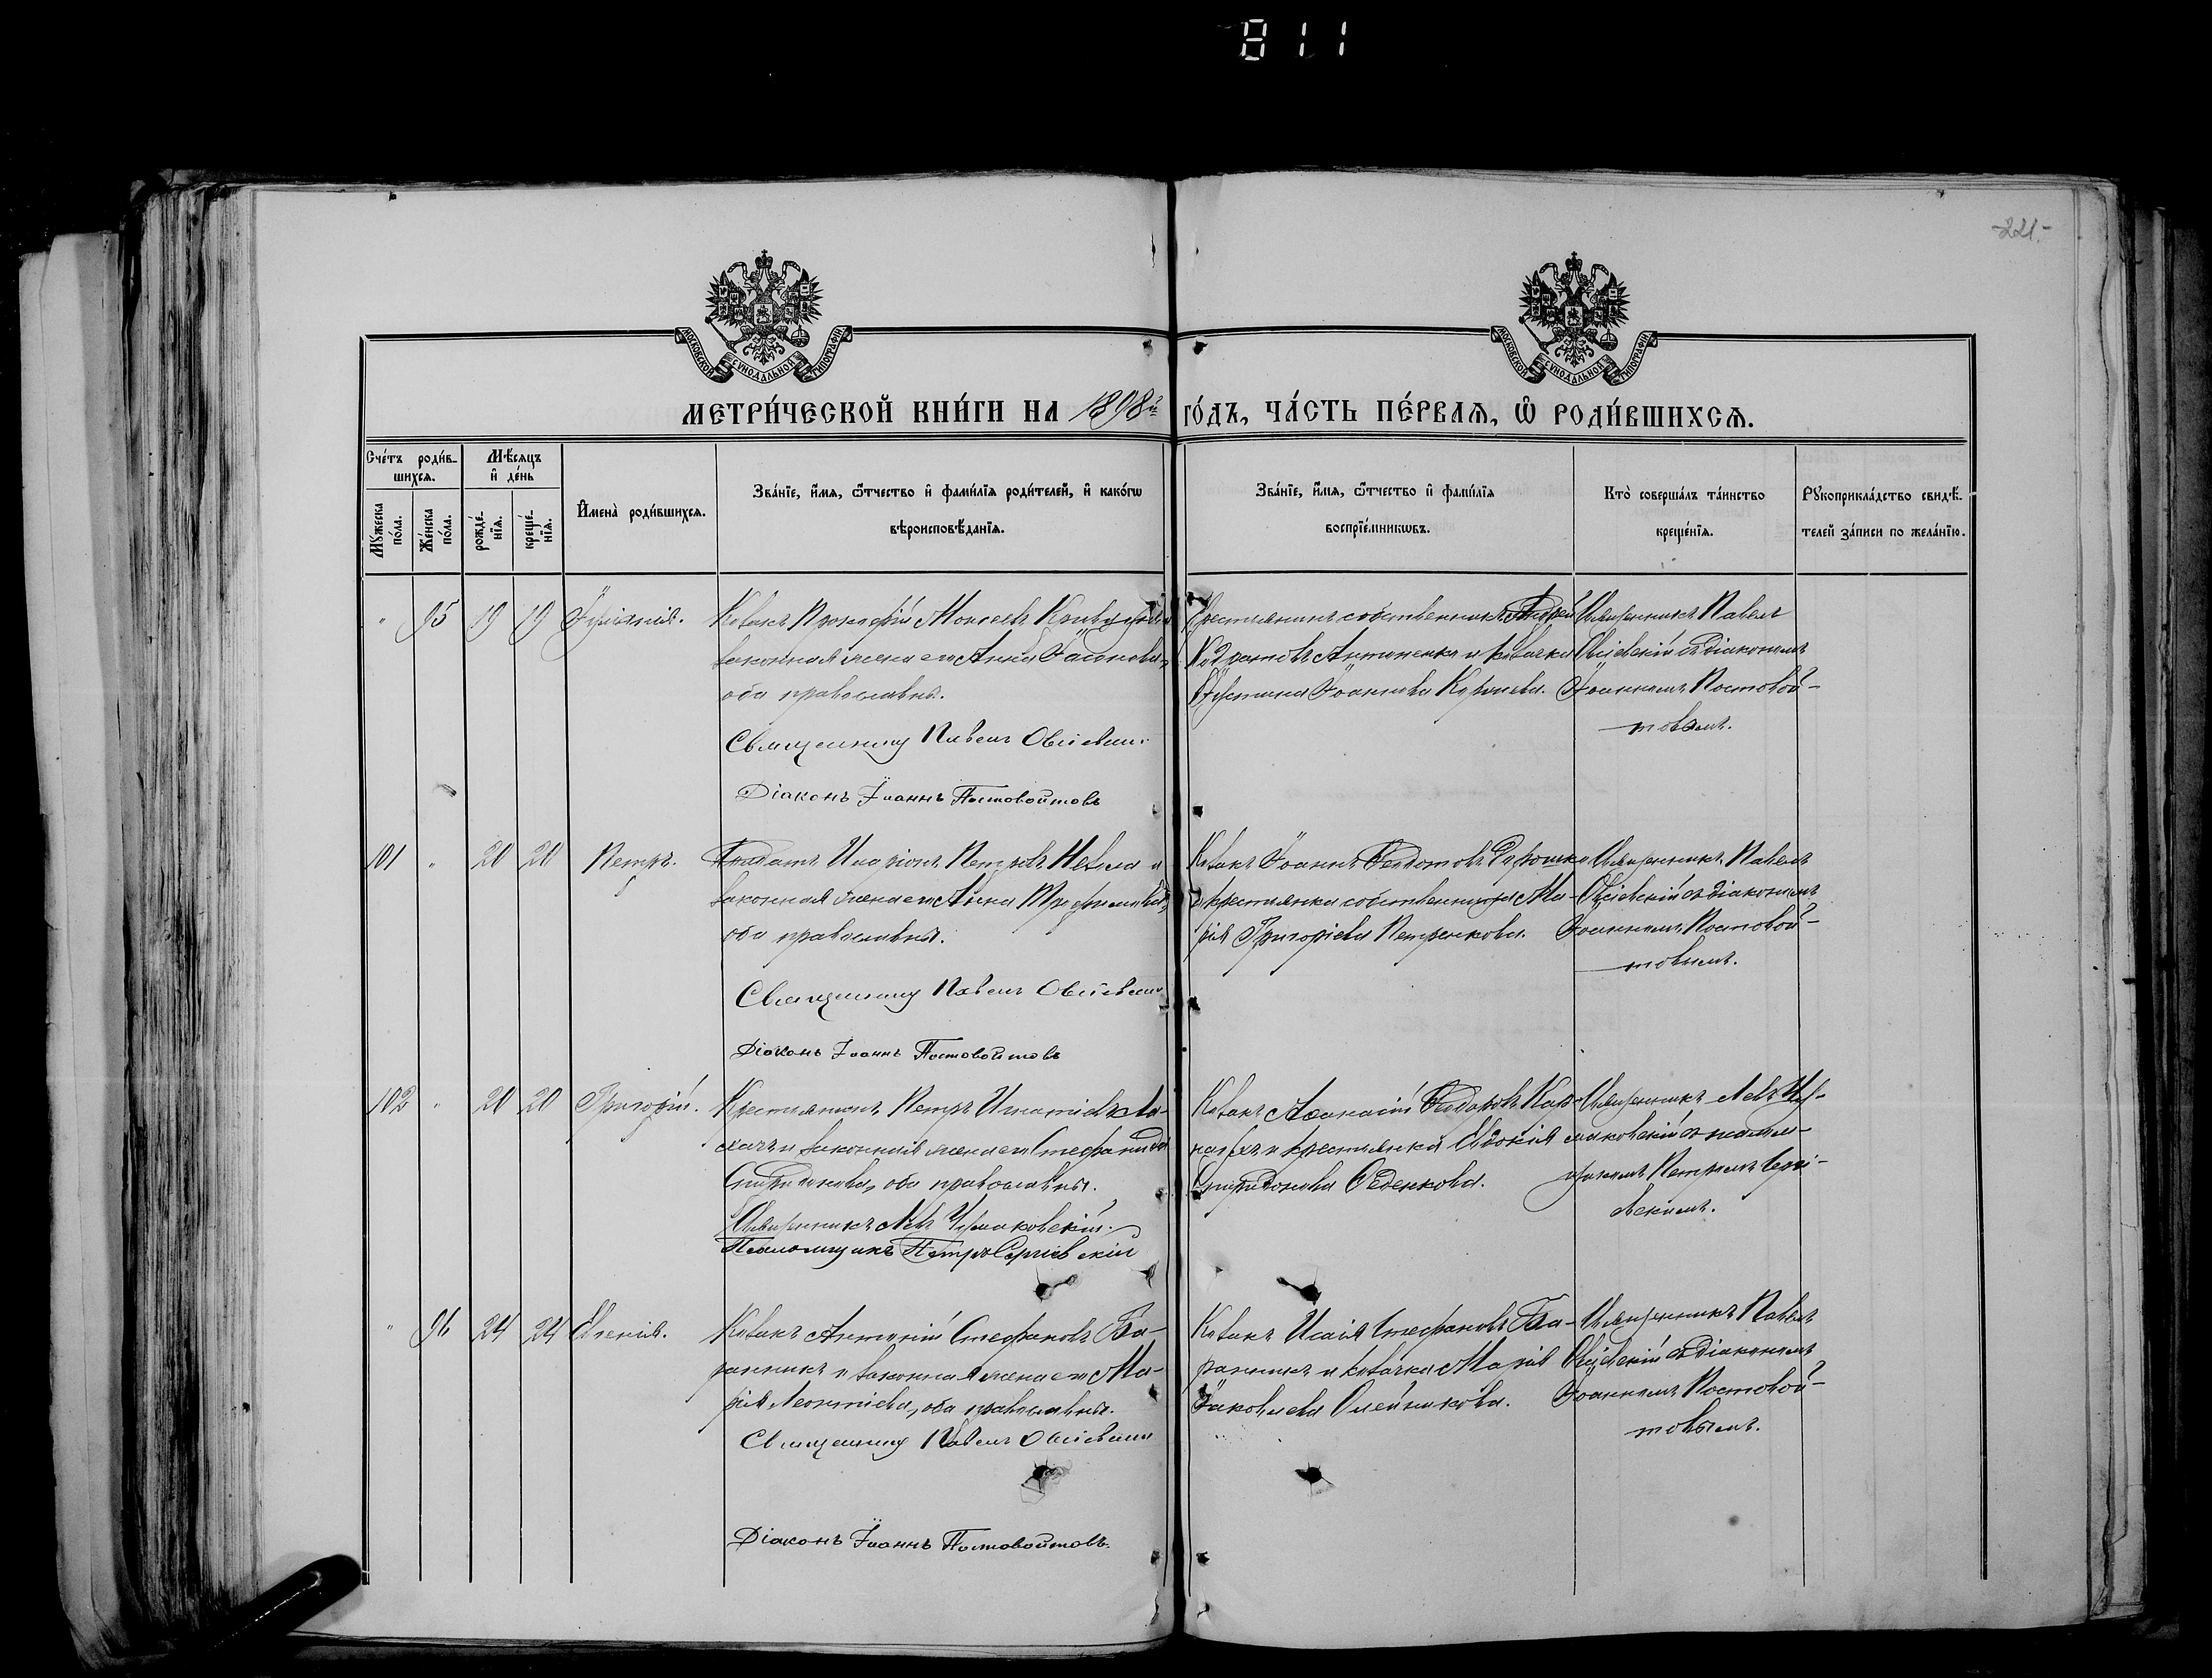 811
221.
МОСКОВСКОЙ СѴНОДАЛЬНОЙ ТИПОГРАФІИ
МОСКОВСКОЙ СѴНОДАЛЬНОЙ ТИПОГРАФІИ
МЕТРИ́ЧЕСКОЙ КНИ́ГИ НА 1898й ГО́ДЪ, ЧА́СТЬ ПЕ́РВАЯ, Ѡ҆ РОДИ́ВШИХСЯ.
Сче́тъ роди́в-
шихся.
Мѹжеска по́ла.
Же́нска по́ла.
Мѣ́сяцъ
и҆ де́нь
рожде́-
нїя.
креще́-
нїя.
И҆мена̀ роди́вшихся.
Зва́нїе, и҆́мя, ѻ҆́тчество и҆ фами́лїя роди́телей, и҆ како́гѡ
вѣроисповѣ́данїя.
Зва́нїе, и҆́мя, ѻ҆́тчество и҆ фами́лїя
воспрїе́мникѡвъ.
Кто̀ соверша́лъ та́инство
креще́нїя.
Рѹкоприкла́дство свидѣ́-
телей за́писи по жела́нїю.
" 95 19 19
Козакъ Прокофій Моисеевъ
законная жена его Анна
оба православные.
Священникъ Павелъ
Діаконъ Іоаннъ Постовойтовъ
Крестьянинъ собственникъ Андрей
Кодратовъ Антоненко и козачка
Іустина Іоаннова
Священникъ Павелъ
съ діакономъ
Іоанномъ Постовой-
товымъ.
101 " 20 20 Петръ.
Солдатъ Иларіонъ Петровъ и
законная жена его Анна Трофимова,
оба православные.
Священникъ Павелъ
Діаконъ Іоаннъ Постовойтовъ
Козакъ Іоаннъ Федотовъ
и крестьянка собственница Ма-
рія Григоріева Петренкова.
Священникъ Павелъ
съ діакономъ
Іоанномъ Постовой-
товымъ.
102 " 20 20 Григорій.
Крестьянинъ Петръ Игнатіевъ
и законная жена его Стефанида
Спиридонова, оба православные.
Священникъ Левъ
Псаломщикъ Петръ Сергіевскій
Козакъ Аѳанасій Федоровъ
и крестьянка Евдокія
Спиридонова Феденкова.
Священникъ Левъ
съ псалом-
щикомъ Петромъ Сергі-
евскимъ.
" 96 24 24 Евгенія.
Козакъ Антоній Стефановъ Ба-
ранникъ и законная жена его Ма-
рія Леонтіева, оба православные.
Священникъ Павелъ
Діаконъ Іоаннъ Постовойтовъ.
Козакъ Исаія Стефановъ Ба-
ранникъ и козачка Марія
Іаковлева Олейникова.
Священникъ Павелъ
съ діакономъ
Іоанномъ Постовой-
товымъ.